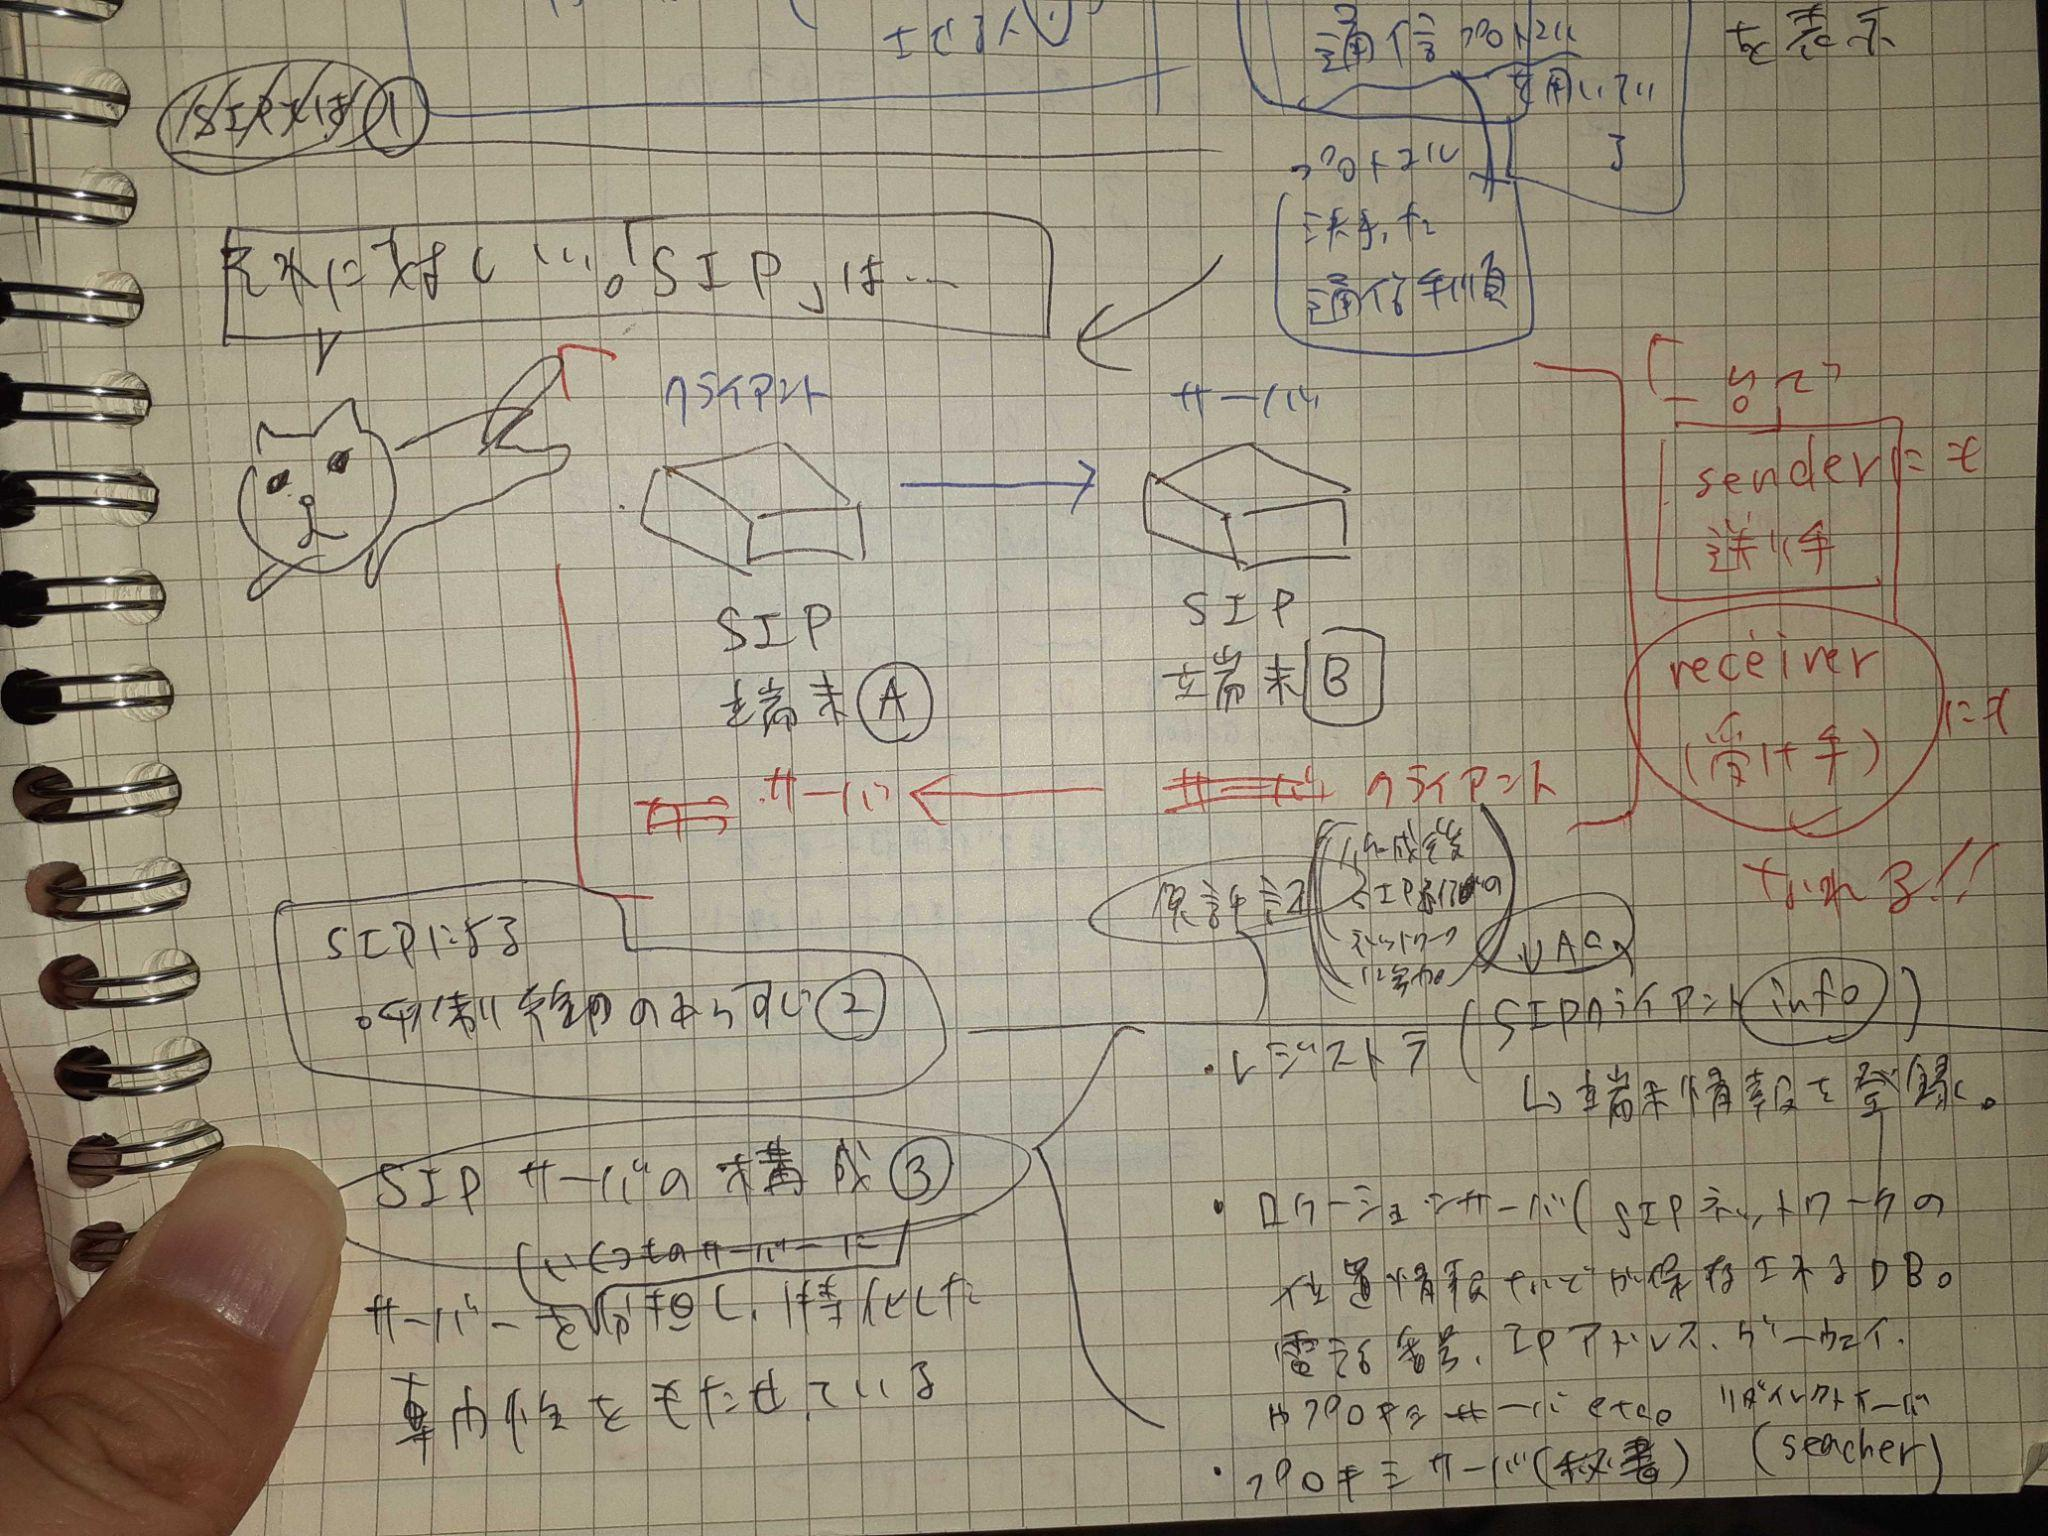 通信プロトコル
を用いてい
る
を表示
SIPとは ①
プロトコル
決まった
通信手順
それに対し…。「SIP」は…
クライアント
サーバ
SIP
端末Ⓐ
SIP
端末B
サーバ
サーバ クライアント
sender にも
送り手
receiver にも
(受け手)
なれる!!
SIPによる
呼制御のあらすじ②
UAC
・レジストラ(SIPクライアントinfo)
↳端末情報を登録。
SIPサーバの構成③
(いくつものサーバーに
サーバーを分担し、特化した
専門性をもたせている
・ロケーションサーバ(SIPネットワークの
位置情報などが保存されるDB。
電話番号、IPアドレス、ゲートウェイ、
プロキシサーバetc。
リダイレクトサーバ
・プロキシサーバ(秘書)
(seacher)